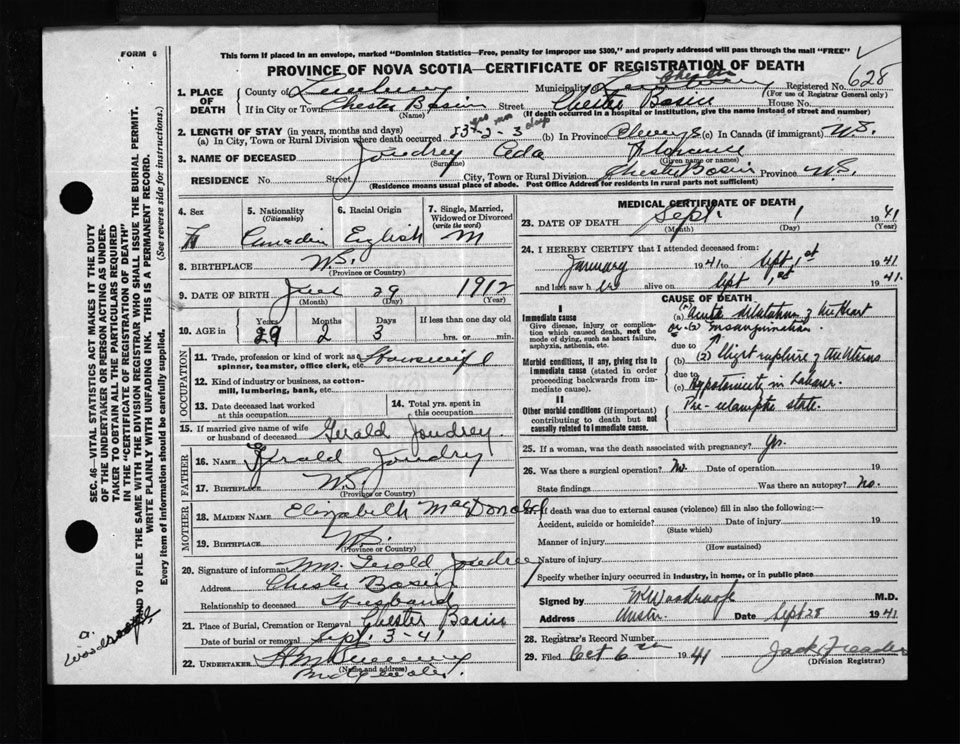 FORM 6
This form if placed in an envelope, marked "Dominion Statistics—Free, penalty for improper use $300," and properly addressed will pass through the mail "FREE"
PROVINCE OF NOVA SCOTIA—CERTIFICATE OF REGISTRATION OF DEATH
1. PLACE OF DEATH County of Lunenburg Municipality Chester Registered No. 628
(For use of Registrar General only)
If in City or Town Chester Basin Street Chester Basin House No.
(Name) (If death occurred in a hospital or institution, give the name instead of street and number)
2. LENGTH OF STAY (in years, months and days)
(a) In City, Town or Rural Division where death occurred yrs mos days 2-3 (b) In Province Always (c) In Canada (if immigrant) N.S.
3. NAME OF DECEASED Joudrey Ada Florence
(Surname) (Given name or names)
RESIDENCE No. Street City, Town or Rural Division Chester Basin Province N.S.
(Residence means usual place of abode. Post Office Address for residents in rural parts not sufficient)
4. Sex F
5. Nationality (Citizenship) Canadin
6. Racial Origin English
7. Single, Married, Widowed or Divorced (write the word) M
8. BIRTHPLACE N.S.
(Province or Country)
9. DATE OF BIRTH 29 1912
(Month) (Day) (Year)
10. AGE in Years 29 Months 2 Days 3 If less than one day old hrs. or min.
OCCUPATION
11. Trade, profession or kind of work as spinner, teamster, office clerk, etc. Housewife
12. Kind of industry or business, as cotton-mill, lumbering, bank, etc.
13. Date deceased last worked at this occupation
14. Total yrs. spent in this occupation
15. If married give name of wife or husband of deceased Gerald Joudrey.
FATHER
16. NAME Gerald Joudry
17. Birthplace N.S.
(Province or Country)
MOTHER
18. MAIDEN NAME Elizabeth MacDonald
19. BIRTHPLACE N.S.
(Province or Country)
20. Signature of informant Gerald Joudrey
Address Chester Basin
Relationship to deceased Husband
21. Place of Burial, Cremation or Removal Chester Basin
Date of burial or removal Sept. 3-41
22. UNDERTAKER
(Name and address)
Bridgewater.
MEDICAL CERTIFICATE OF DEATH
23. DATE OF DEATH Sept. 1 1941
(Month) (Day) (Year)
24. I HEREBY CERTIFY that I attended deceased from:
January 1941 to Sept 1st 1941
and last saw her alive on Sept 1st 1941.
CAUSE OF DEATH
I
Immediate cause
Give disease, injury or complication which caused death, not the mode of dying, such as heart failure, asphyxia, asthenia, etc.
(a) (1) Acute dilatation of the Heart
or (2) Exsanguination
due to
Morbid conditions, if any, giving rise to immediate cause (stated in order proceeding backwards from immediate cause).
(b) (2) Slight rupture of the Uterus
due to
(c) Hypotonicity in Labour.
II
Other morbid conditions (if important) contributing to death but not causally related to immediate cause.
Pre-eclamptic state.
25. If a woman, was the death associated with pregnancy? Yes.
26. Was there a surgical operation? No. Date of operation 19
State findings Was there an autopsy? No.
27. If death was due to external causes (violence) fill in also the following:—
Accident, suicide or homicide? Date of injury 19
(State which)
Manner of injury
(How sustained)
Nature of injury
Specify whether injury occurred in industry, in home, or in public place
Signed by Woodroofe M.D.
Address Chester Date Sept 28 1941
28. Registrar's Record Number
29. Filed Oct 6th 1941 Jack Freader
(Division Registrar)
SEC. 46—VITAL STATISTICS ACT MAKES IT THE DUTY
OF THE UNDERTAKER OR PERSON ACTING AS UNDERTAKER TO OBTAIN ALL THE PARTICULARS REQUIRED
IN THE "CERTIFICATE OF REGISTRATION OF DEATH"
AND TO FILE THE SAME WITH THE DIVISION REGISTRAR WHO SHALL ISSUE THE BURIAL PERMIT.
WRITE PLAINLY WITH UNFADING INK. THIS IS A PERMANENT RECORD.
Every item of information should be carefully supplied. (See reverse side for instructions.)